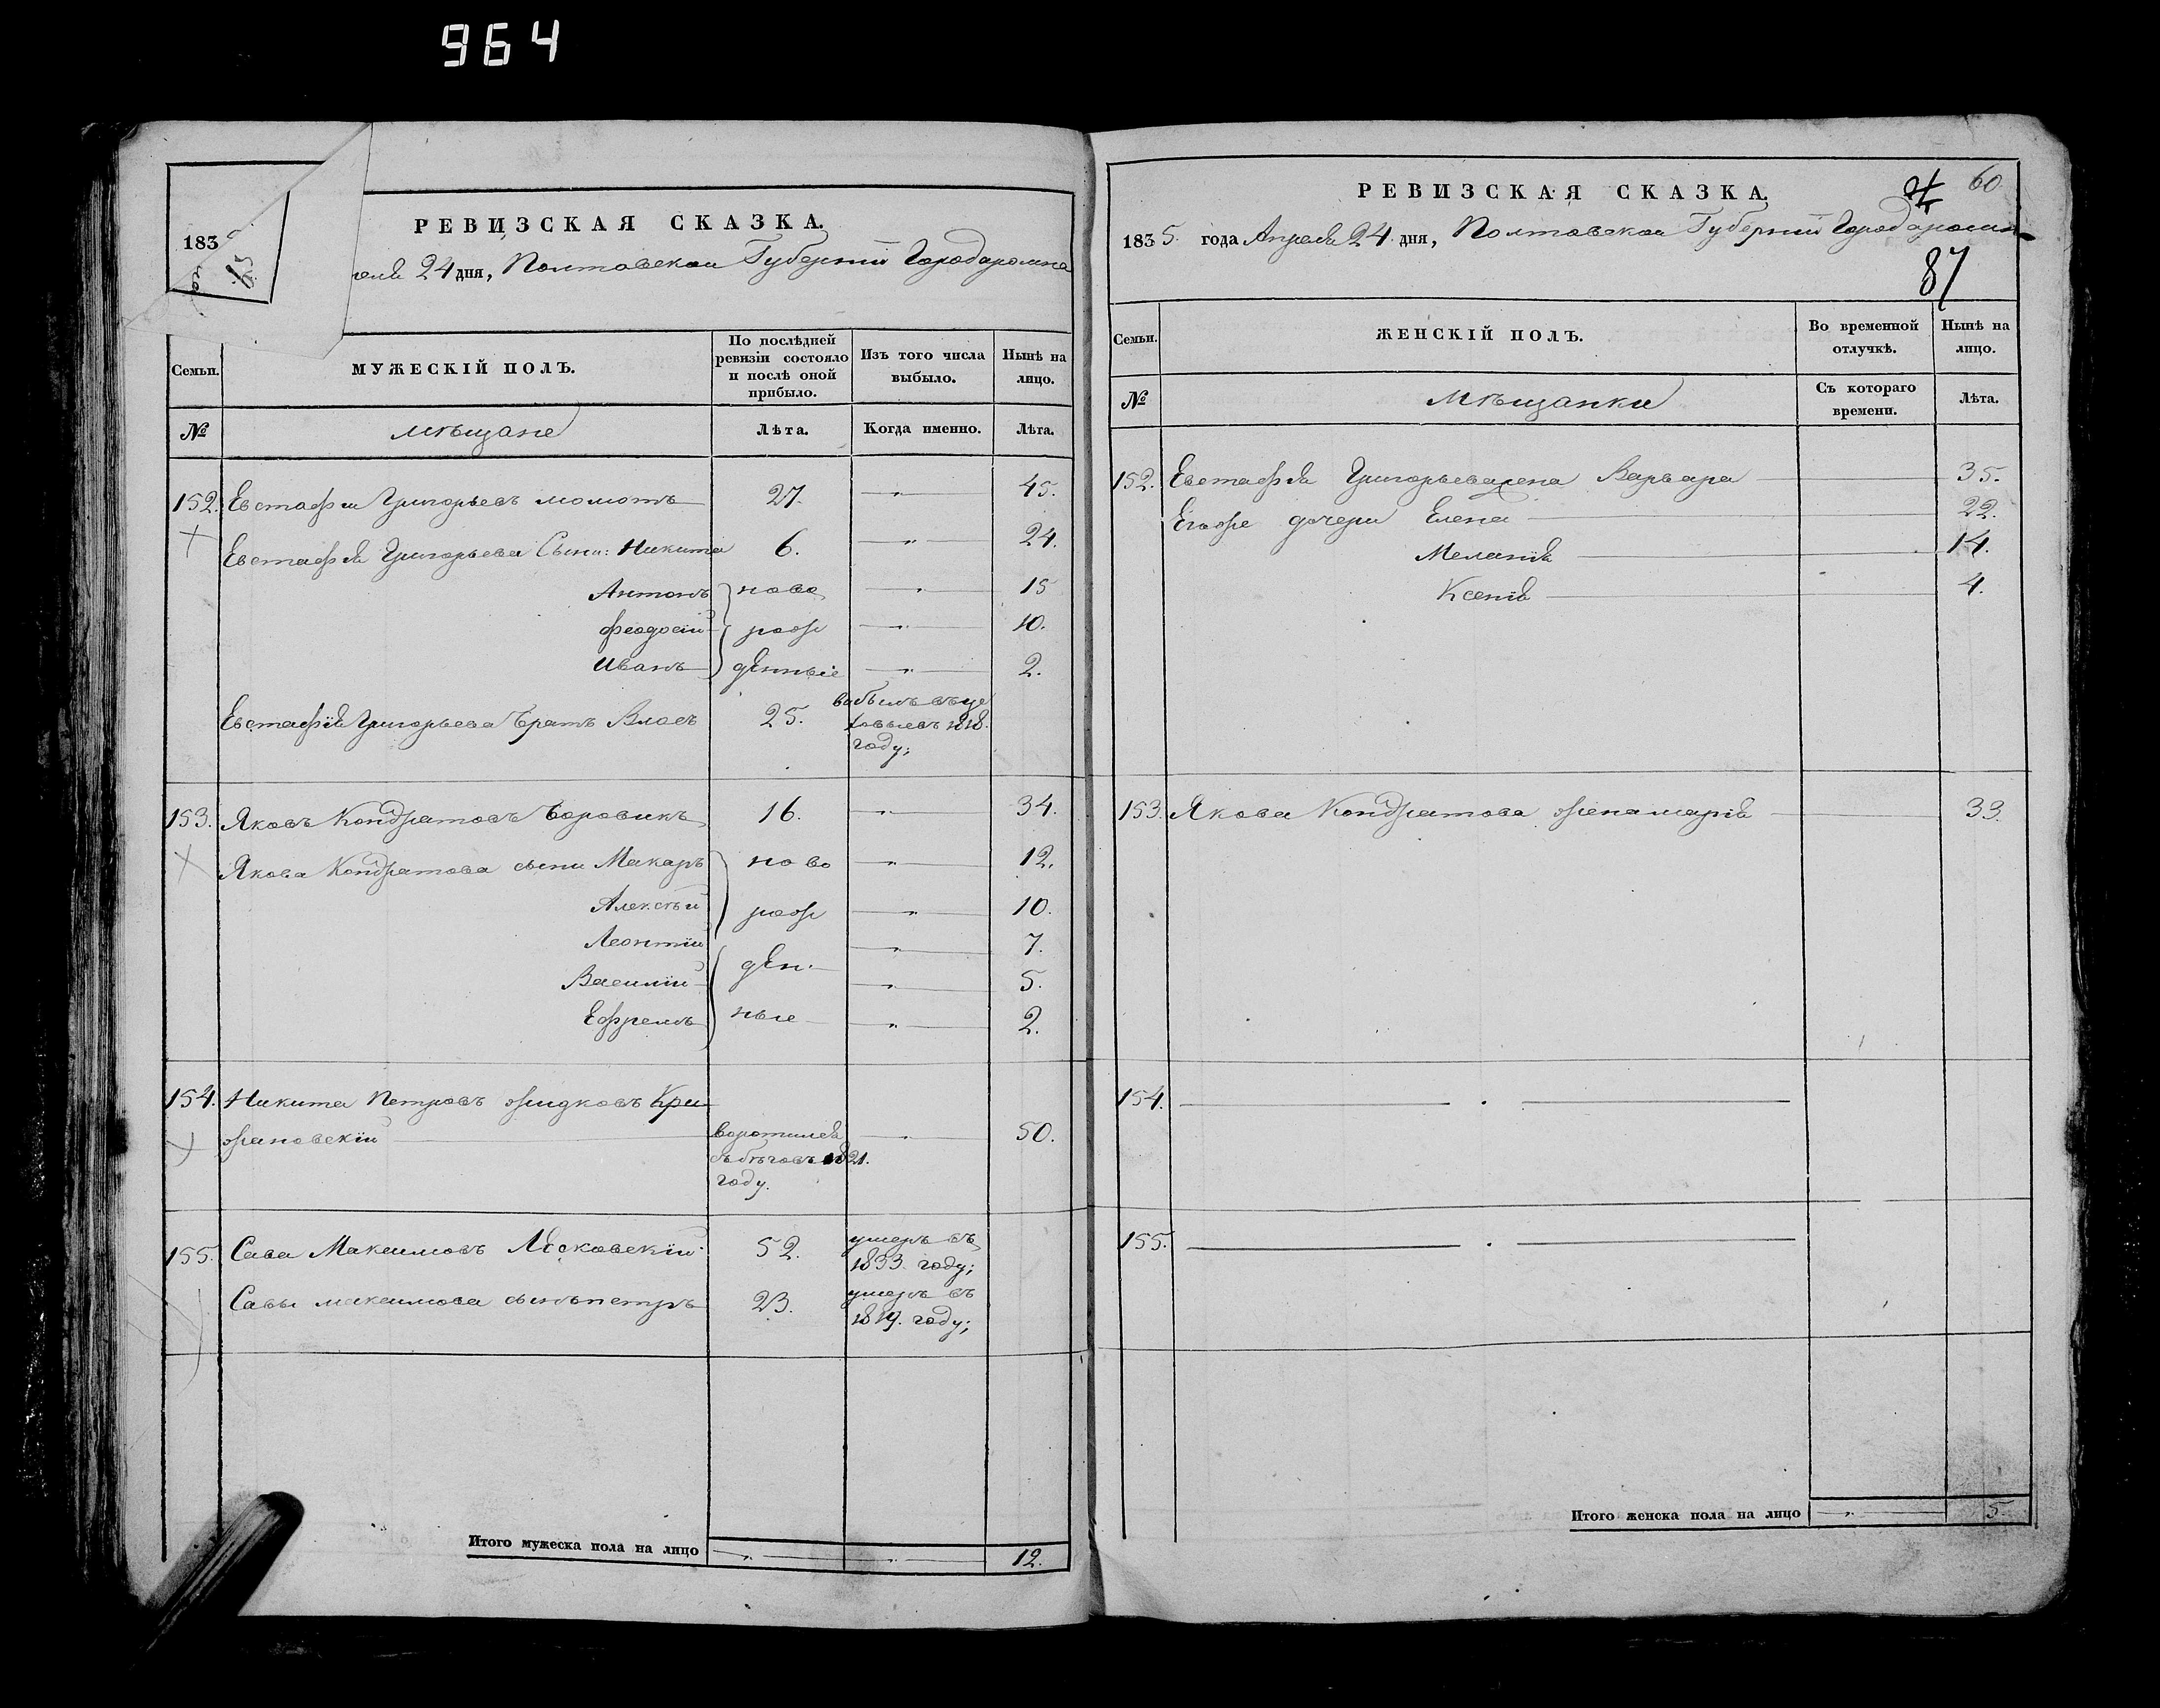 964
РЕВИЗСКАЯ СКАЗКА.
183
еля 24 дня, Полтавской Губернии Города ромна
Семьи.
МУЖЕСКІЙ ПОЛЪ.
По послѣдней ревизіи состояло и послѣ оной прибыло.
Изъ того числа выбыло.
Нынѣ на лицо.
№
мѣщане
Лѣта.
Когда именно.
Лѣта.
152. Евстафий Григорьевъ момотъ 27. 45.
Евстафія Григорьева Сыни: Никита 6. 24.
Антонъ ново 15
феодосій рож 10.
Иванъ денныіе 2.
Евстафія Григорьева братъ Власъ 25.
1818.
году;
153. Яковъ Кондратовъ боровикъ 16. 34.
Якова Кондратова сыни Макаръ ново 12.
Алексѣй рож 10.
Леонтій 7.
Василій ден. 5.
Ефремъ ные 2.
154. Никита Петровъ жидковъ Кри
жановскій воротился 50.
съ бѣговъ 1821.
году.
155. Сава Максимовъ 52. умеръ въ
1833. году;
Савы максимова сынъ петръ 23. умеръ въ
1819. году;
Итого мужеска пола на лицо 12.
РЕВИЗСКАЯ СКАЗКА.
60
1835. года Апреля 24 дня, Полтавской Губернии Города ромна
87
Семьи.
ЖЕНСКІЙ ПОЛЪ.
Во временной отлучкѣ.
Нынѣ на лицо.
№
Мѣщанки
Съ котораго времени.
Лѣта.
152. Евстафія Григорьева жена Варвара 35.
Егоже дочери Елена 22.
Меланія 14.
Ксенія 4.
153. Якова Кондратова жена марія 33.
154.
155.
Итого женска пола на лицо 5.